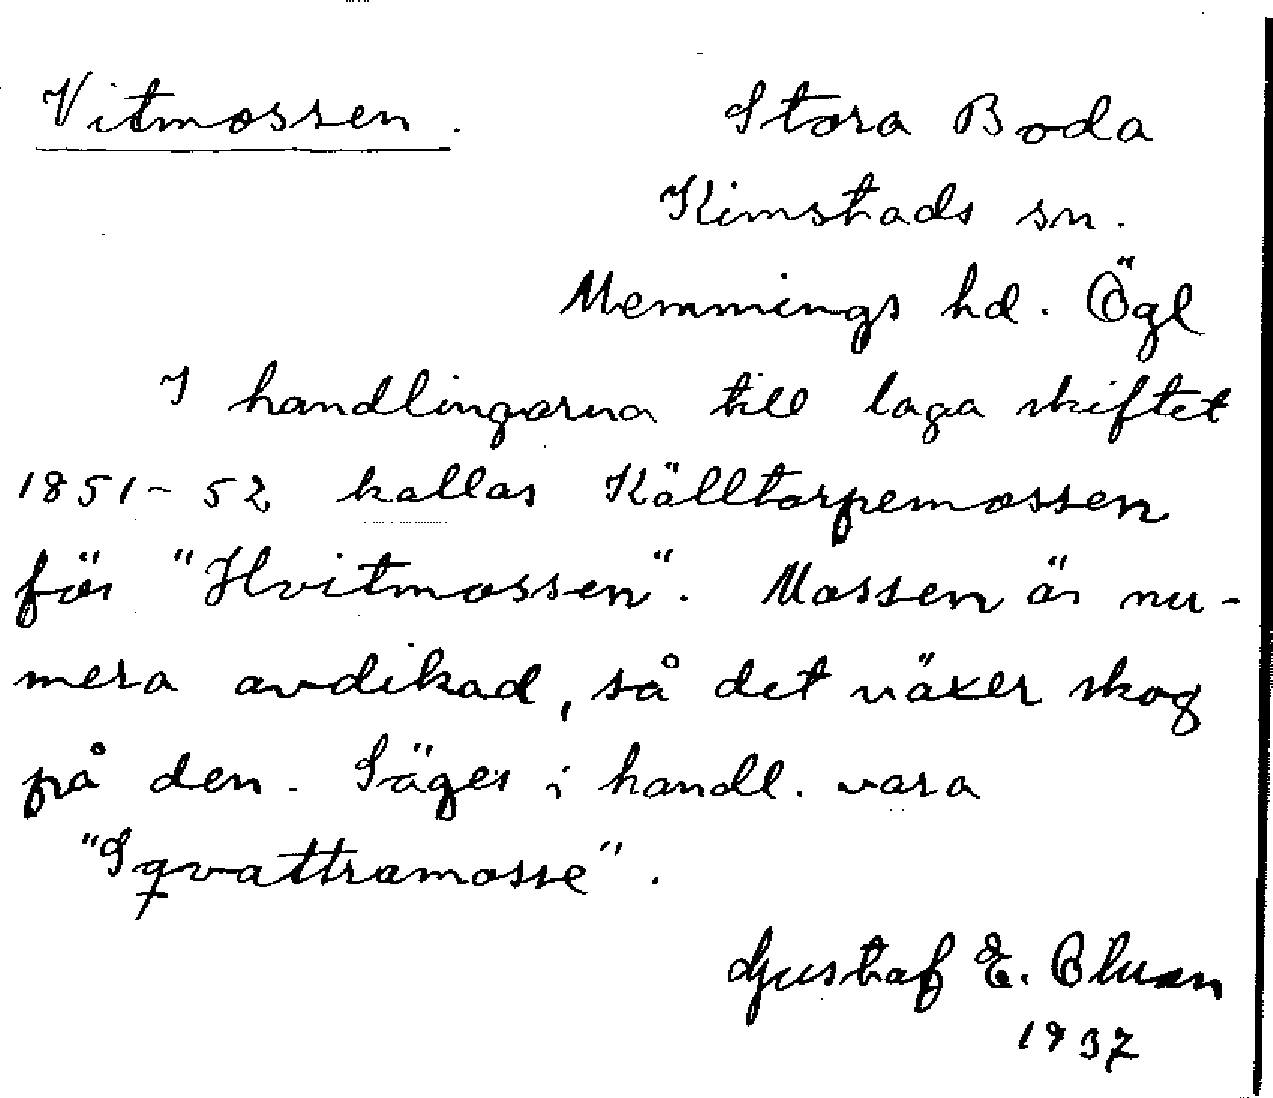 Vitmossen. Stora Boda
Kimstads sn.
Memmings hd. Ögl
I handlingarna till laga skiftet
1851-52 kallas Källtorpemossen
för "Hvitmossen". Mossen är nu-
mera avdikad, så det växer skog
på den. Säges i handl. vara
"Sqvattramosse".
Gustaf E. Bluan
1937